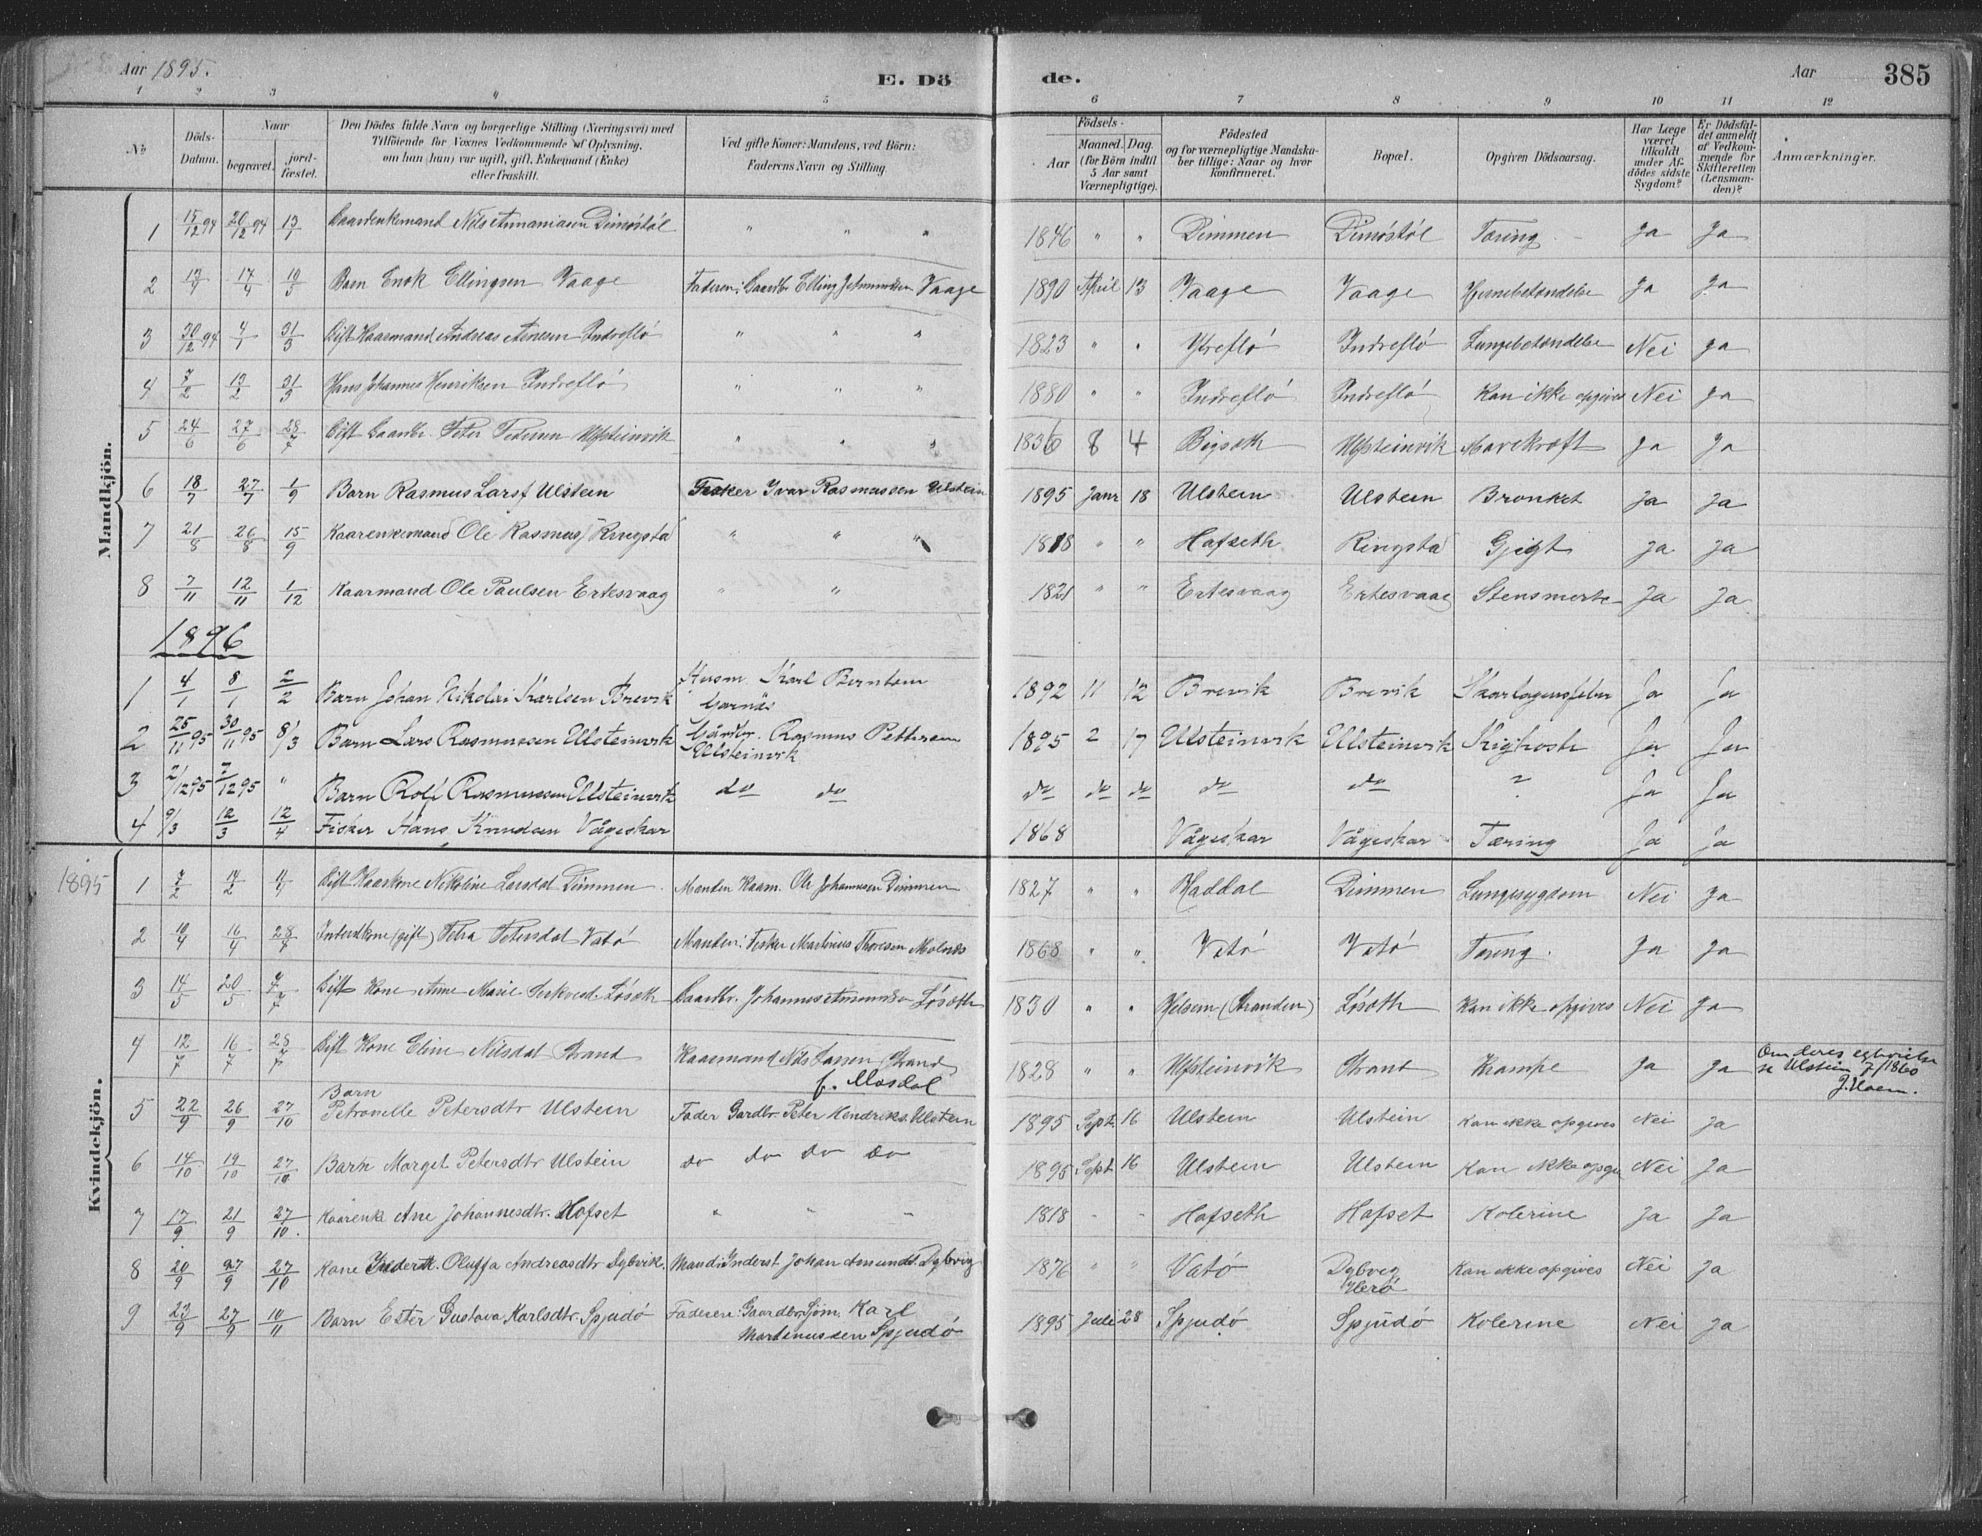 Aar 1895. E. Dö de. Aar 385
1 2 3 4 5 6 7 8 9 10 11 12
No Döds-Datum. Naar begravet. jord-fæstet. Den Dödes fulde Navn og borgerlige Stilling (Næringsvei) med Tilföiende for Voxnes Vedkommende af Oplysning, om han (hun) var ugift, gift, Enkemand (Enke) eller fraskilt. Ved gifte Koner: Mandens, ved Börn: Faderens Navn og Stilling Födsels- Aar Maaned. Dag. (for Börn indtil 5 Aar samt Værnepligtige). Födested og for værnepligtige Mandskaber tillige: Naar og hvor konfirmeret. Bopæl. Opgiven Dödsaarsag. Har Læge været tilkaldt under Afdödes sidste Sygdom? Er Dödsfaldet anmeldt af Vedkommende for Skifteretten (Lensmanden)? Anmærkninger.
Mandkjön.
1 15/12 94 20/12 94 13/1 Gaardenkemand Nils Ananiasen Dimöstöl " " " 1846 " " Dimmen Dimöstöl Tæring Ja Ja
2 17/4 19/5 Barn Enok Ellingsen Vaage Faderen: Gaardbr Elling Johannessen Vaage 1890 April 13 Vaage Vaage Hjernebetændelse Ja Ja
3 30/12 94 4/1 31/3 Gift Kaarmand Andreas Indreflö " " " 1823 " " Ytreflö Indreflö Lungebetændelse Nei Ja
4 7/2 13/2 31/3 Hans Johannes Henriksen Indreflö " " " 1880 " " Indreflö Indreflö Kan ikke opgives Nei Ja
5 24/6 27/6 28/7 Gift Gaardbr. Peter Pedersen Ulfsteinvik " " " 1836 8 4 Bigsæth Ulfsteinvik Mavekræft Ja Ja
6 18/7 27/7 1/9 Barn Rasmus Larsf Ulstein Fisker Ivar Rasmussen Ulstein 1895 Janr 18 Ulstein Ulstein Bronket Ja Ja
7 21/8 26/8 15/9 Kaarenkemand Ole Rasmus Ringstad " " " 1818 " " Hafseth Ringstad Gjigt Ja Ja
8 7/11 12/11 1/12 Kaarmand Ole Paulsen Ertesvaag " " 1821 " " Ertesvaag Ertesvaag Stensmerte Ja Ja
1896
1 4/1 8/1 2/2 Barn Johan Nikolai Karlsen Brevik Husm. Karl Berntsen Garnæs 1892 11 12 Brevik Brevik Skarlagensfeber Ja Ja
2 25/11 95 30/11 95 8/3 Barn Lars Rasmussen Ulsteinvik Gårdbr. Rasmus Pettersen Ulsteinvik 1895 2 17 Ulsteinvik Ulsteinvik Kighoste Ja Ja
3 2/12 95 7/12 95 " Barn Rolf Rasmussen Ulsteinvik do do do do do do do ? Ja Ja
4 9/3 12/3 12/4 Fisker Hans Knudsen Vågeskar 1868 Vågeskar Vågeskar Tæring Ja Ja
Kvindekjön.
1895 1 7/2 14/2 Gift Kaarkone Nikoline Larsdat Dimmen Manden Kaarm. Ole Johannesen Dimmen 1827 " " Haddal Dimmen Lungesygdom Nei Ja
2 10/4 16/4 28/4 Inderstkone (gift) Petra Petersdat Vatö Manden: Fisker Martinus Thoresen Molnes 1868 " " Vatö Vatö Tæring. Ja Ja
3 14/5 20/5 7/7 Gift Kone Anne Marie Løsæth Gaardbr. Johannes Løsæth 1830 " " (Stranden) Løsæth Kan ikke opgives Nei Ja
4 12/7 16/7 28/7 Gift Kone Eline Nilsdat Strand Kaarmand Nils Larsen Strand f. Mosdal 1828 " " Ulfsteinvik Strand Krampe Ja Ja Om deres egtevielse se Ulstein 7/1860
5 22/9 26/9 27/10 Barn Petronille Petersdtr Ulstein Fader Gardbr. Peter Hendriks. Ulstein 1895 Sept. 16 Ulstein Ulstein Kan ikke opgives Nei Ja
6 14/10 19/10 27/10 Barn Marget Petersdtr Ulstein do do do do 1895 Sept 16 Ulstein Ulstein Kan ikke opgi Nei Ja
7 17/9 21/9 27/10. Kaarenk Ane Johannesdtr. Hofset " " " 1818 " " Hafseth Hofset Kolerine Ja Ja
8 20/9 27/9 27/10 Kone Inderstk. Oluffa Andreasdtr Dybvik. Mand: Inderst Johan Amunds. Dybvig 1876 " " Vatö Dybvig Herö Kan ikke opgives Nei Ja
9 23/9 27/9 10/11 Barn Ester Gustava Karlsdtr. Spjudö Faderen: Gaardbr Søn. Karl Martinussen Spjudö 1895 Juli 28 Spjudö Spjudö Kolerine Nei Ja